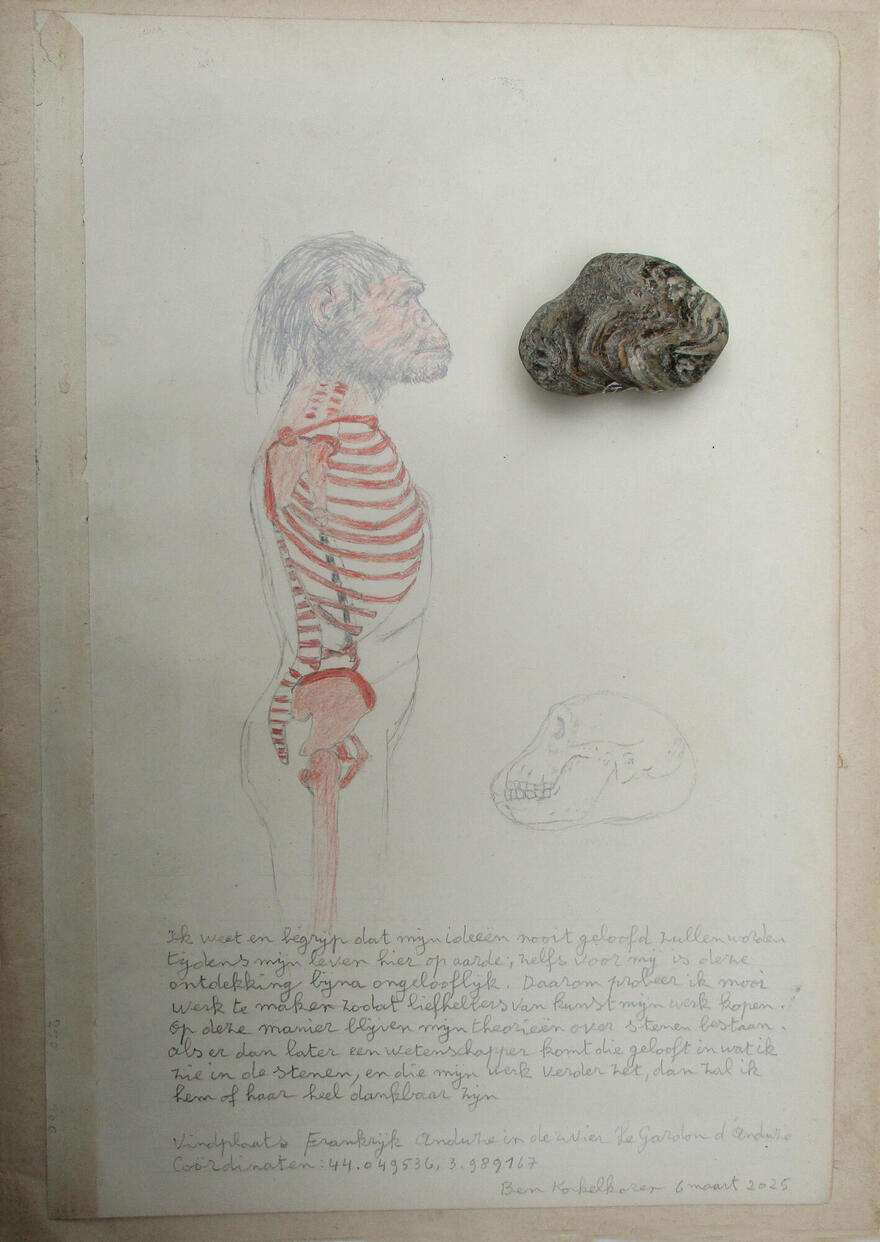 Ik weet en begrijp dat mijn ideeën nooit geloofd zullen worden
tijdens mijn leven hier op aarde, zelfs voor mij is deze
ontdekking bijna ongelooflijk. Daarom probeer ik mooi
werk te maken zodat liefhebbers van kunst mijn werk kopen.
Op deze manier blijven mijn theorieën over stenen bestaan.
Als er dan later een wetenschapper komt die gelooft in wat ik
zie in de stenen, en die mijn werk verder zet, dan zal ik
hem of haar heel dankbaar zijn
Vindplaats Frankrijk Anduze in de rivier Le Gardon d'Anduze
Coördinaten: 44.049536, 3.989167
Ben Kockelkoren 6 maart 2025